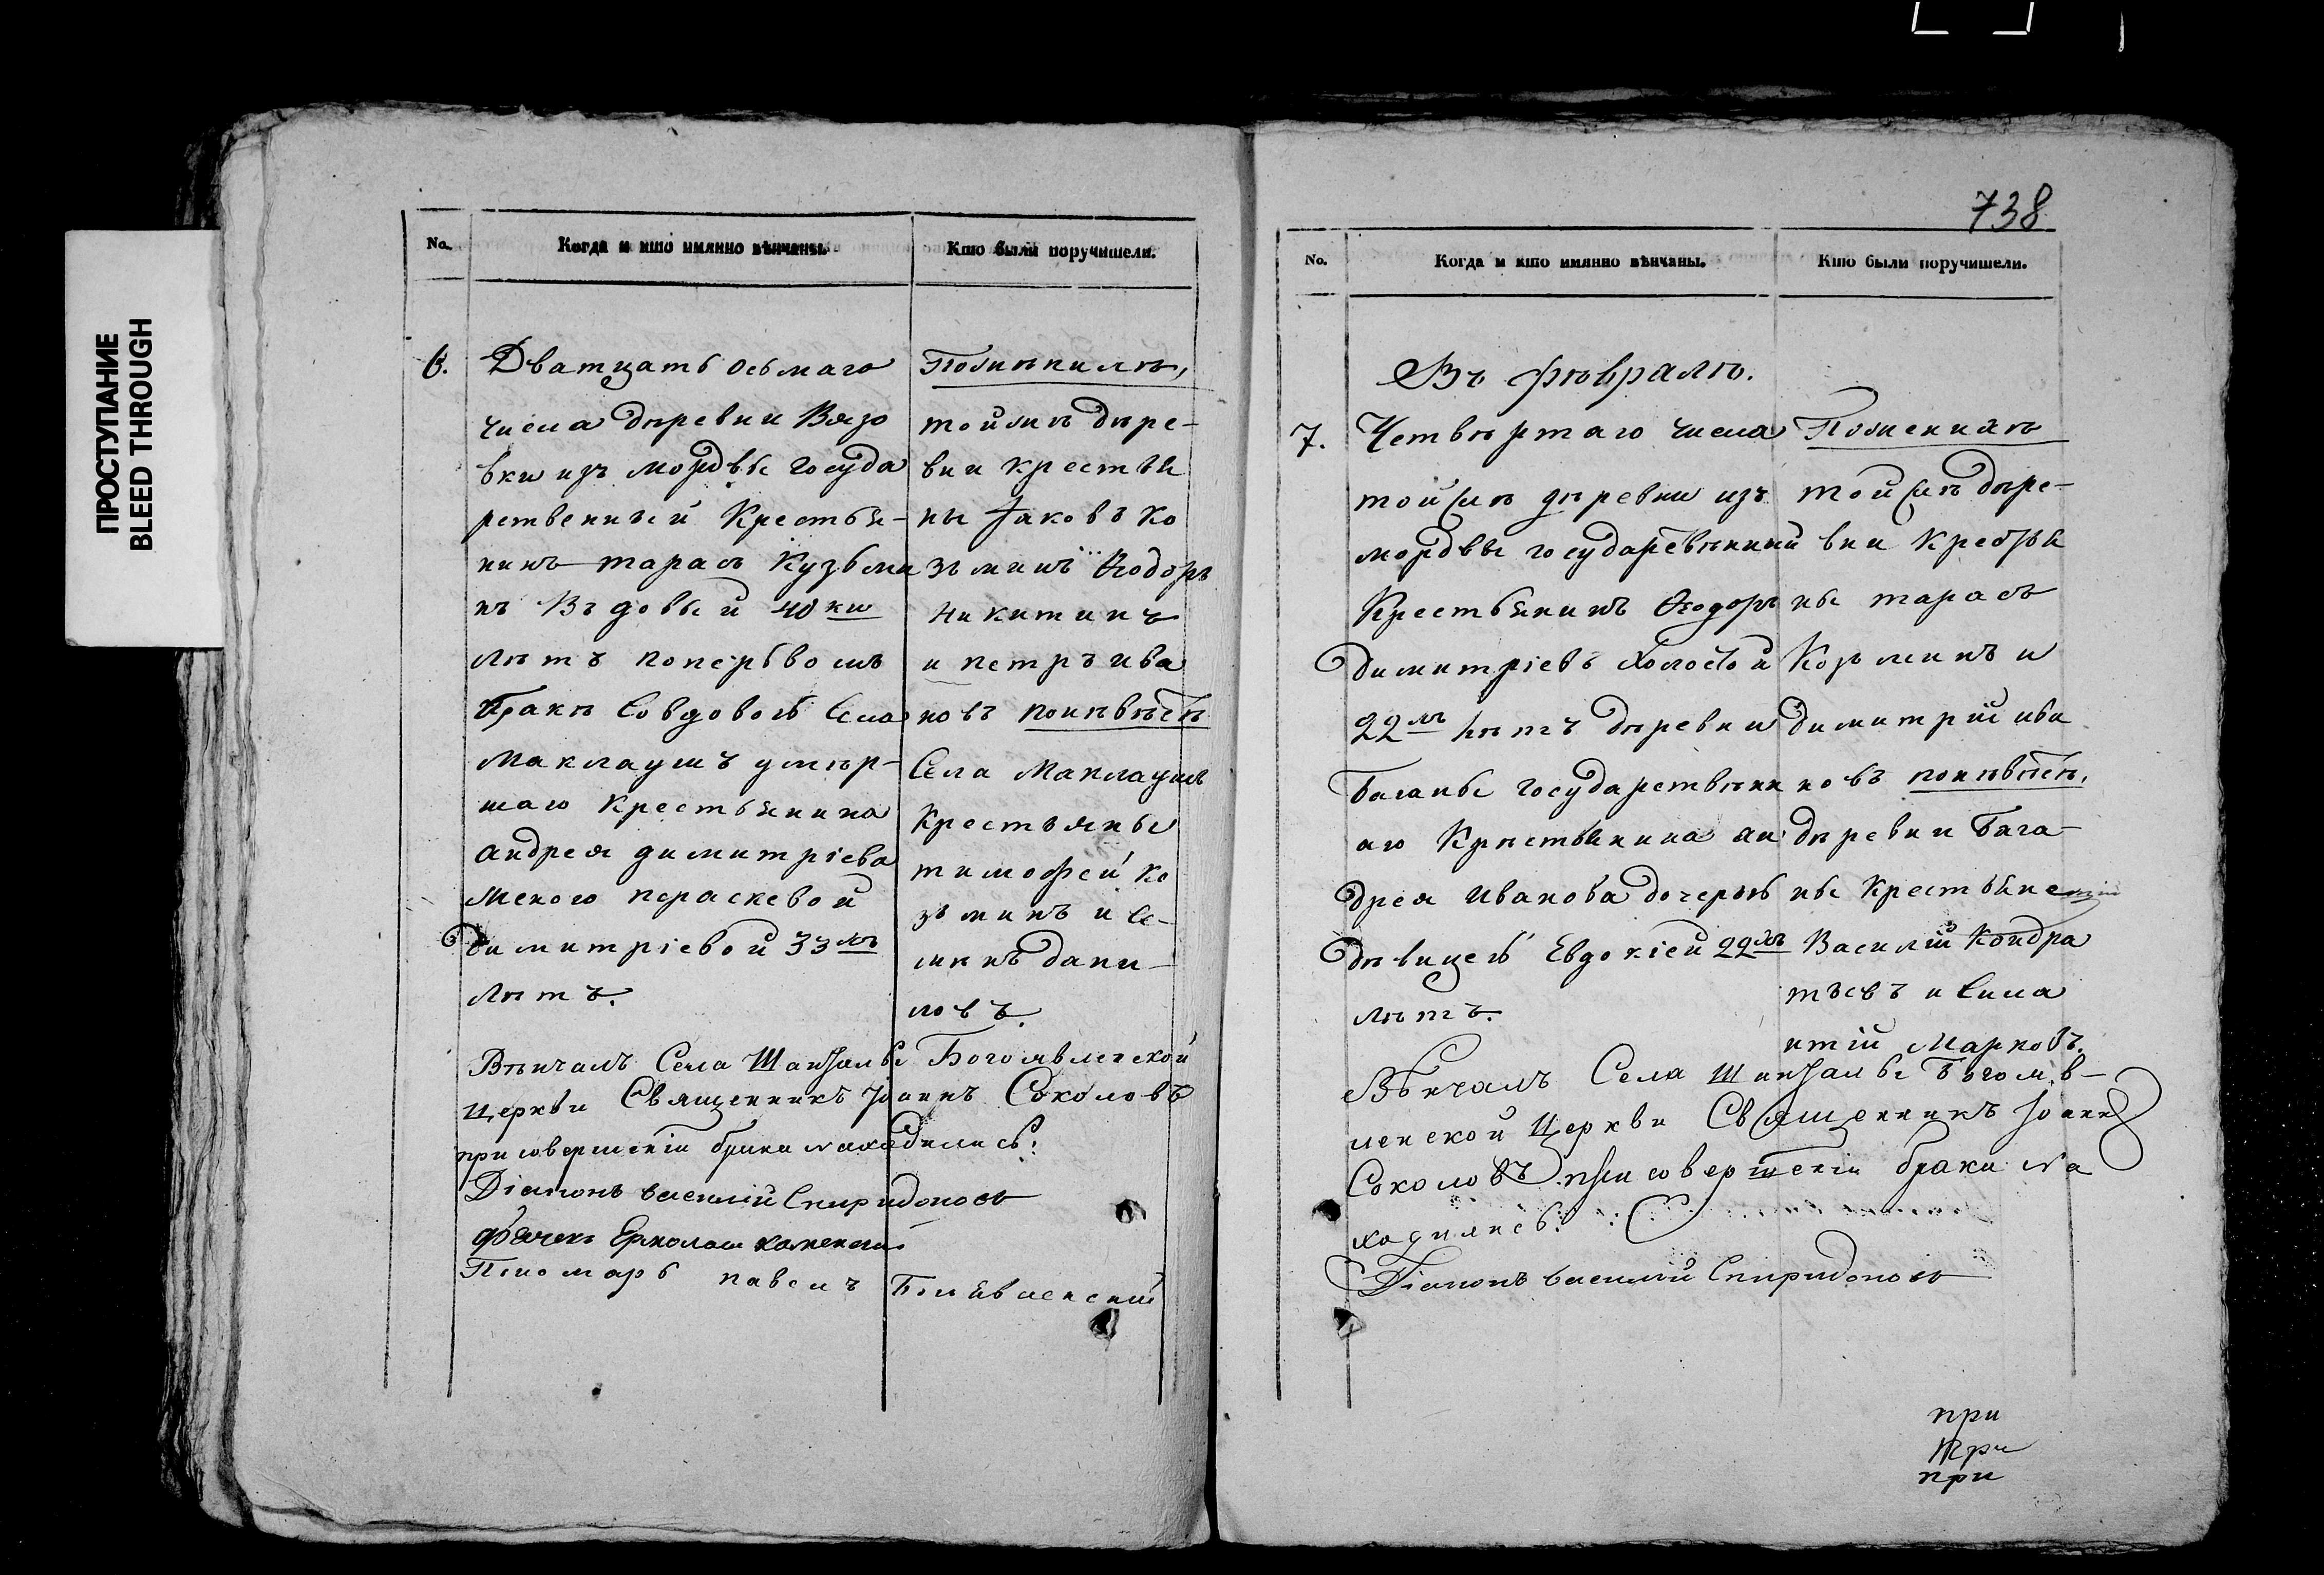 ПРОСТУПАНИЕ
BLEED THROUGH
No.
Когда и кто имянно вѣнчаны.
Кто были поручители.
6.
Дватцать осьмаго
числа дѣревни Вязо
вки изъ мордвы госуда
рственный Крестья-
нинъ тарасъ Кузьми
нъ Въдовый 40 ки
лѣтъ поперьвомъ
бракѣ Совдовой Села
Маклаушъ умѣр-
шаго Крестьянина
андрея димитріева
женою пераскевой
димитріевой 33 лъ
лѣтъ.
Пожѣнихѣ,
тойжѣ дѣре-
вни крестья
ны Іаковъ Ко
зьминъ Ѳеодоръ
Никитинъ
и петръ ива
новъ поневѣстѣ
Села Маклаушъ
Крестьяны
тимофей Ко
зьминъ и Се-
мѣнъ дани-
ловъ.
Вѣнчалъ Села Шанталы Богоявленской
церкви Священникъ Іоаннъ Соколовъ
при совершеніи брака находились:
Діаконъ василій Спиридоновъ
дьячекъ Ермолаи каменски
Пономарь павелъ Богоявленский
738
No.
Когда и кто имянно вѣнчаны.
Кто были поручители.
Въ фѣвралѣ.
7.
Четвѣртаго числа
тойжѣ дѣревни изъ
мордвы государсвѣнний
Крестьянинъ Ѳеодоръ
димитріевъ холостой
22 лъ лѣтъ дѣревни
Баганы государствѣнн
аго Крѣстьянина ан
дрея Иванова дочерью
дѣвицей Евдокіей 22 лъ
лѣтъ.
Поженихѣ
тойжѣ дѣре-
вни Крестья
ны тарасъ
Козьминъ и
димитрій ива
новъ поневѣстѣ,
дѣревни Бага-
ны Крестьяне
Василій Кондра
тьевъ и Сила
нтій Марковъ.
Вѣнчалъ Села Шанталы Богояв-
ленской церкви Священникъ Іоанн
Соколовъ при совершеніи брака на
ходились:
Діаконъ василий Спиридоновъ
при
при
при